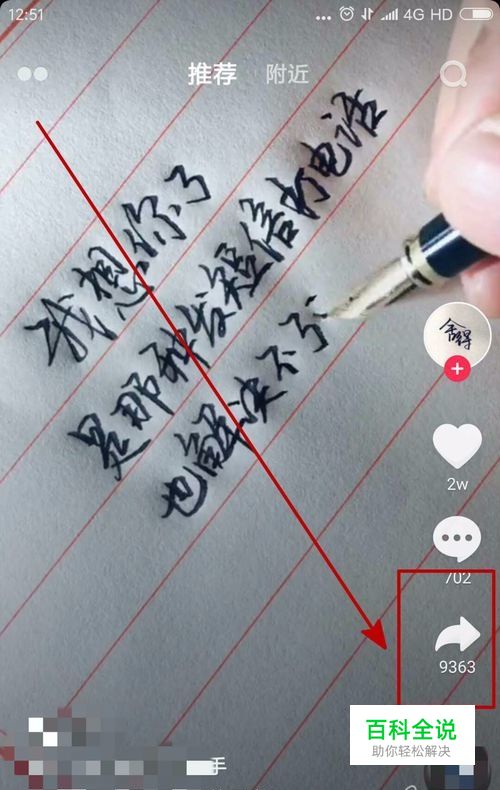 12:51
4G HD
推荐 附近
我想你了
是那种发短信打电话
也解决不了
舍得
2w
702
9363
手
百科全说
助你轻松解决